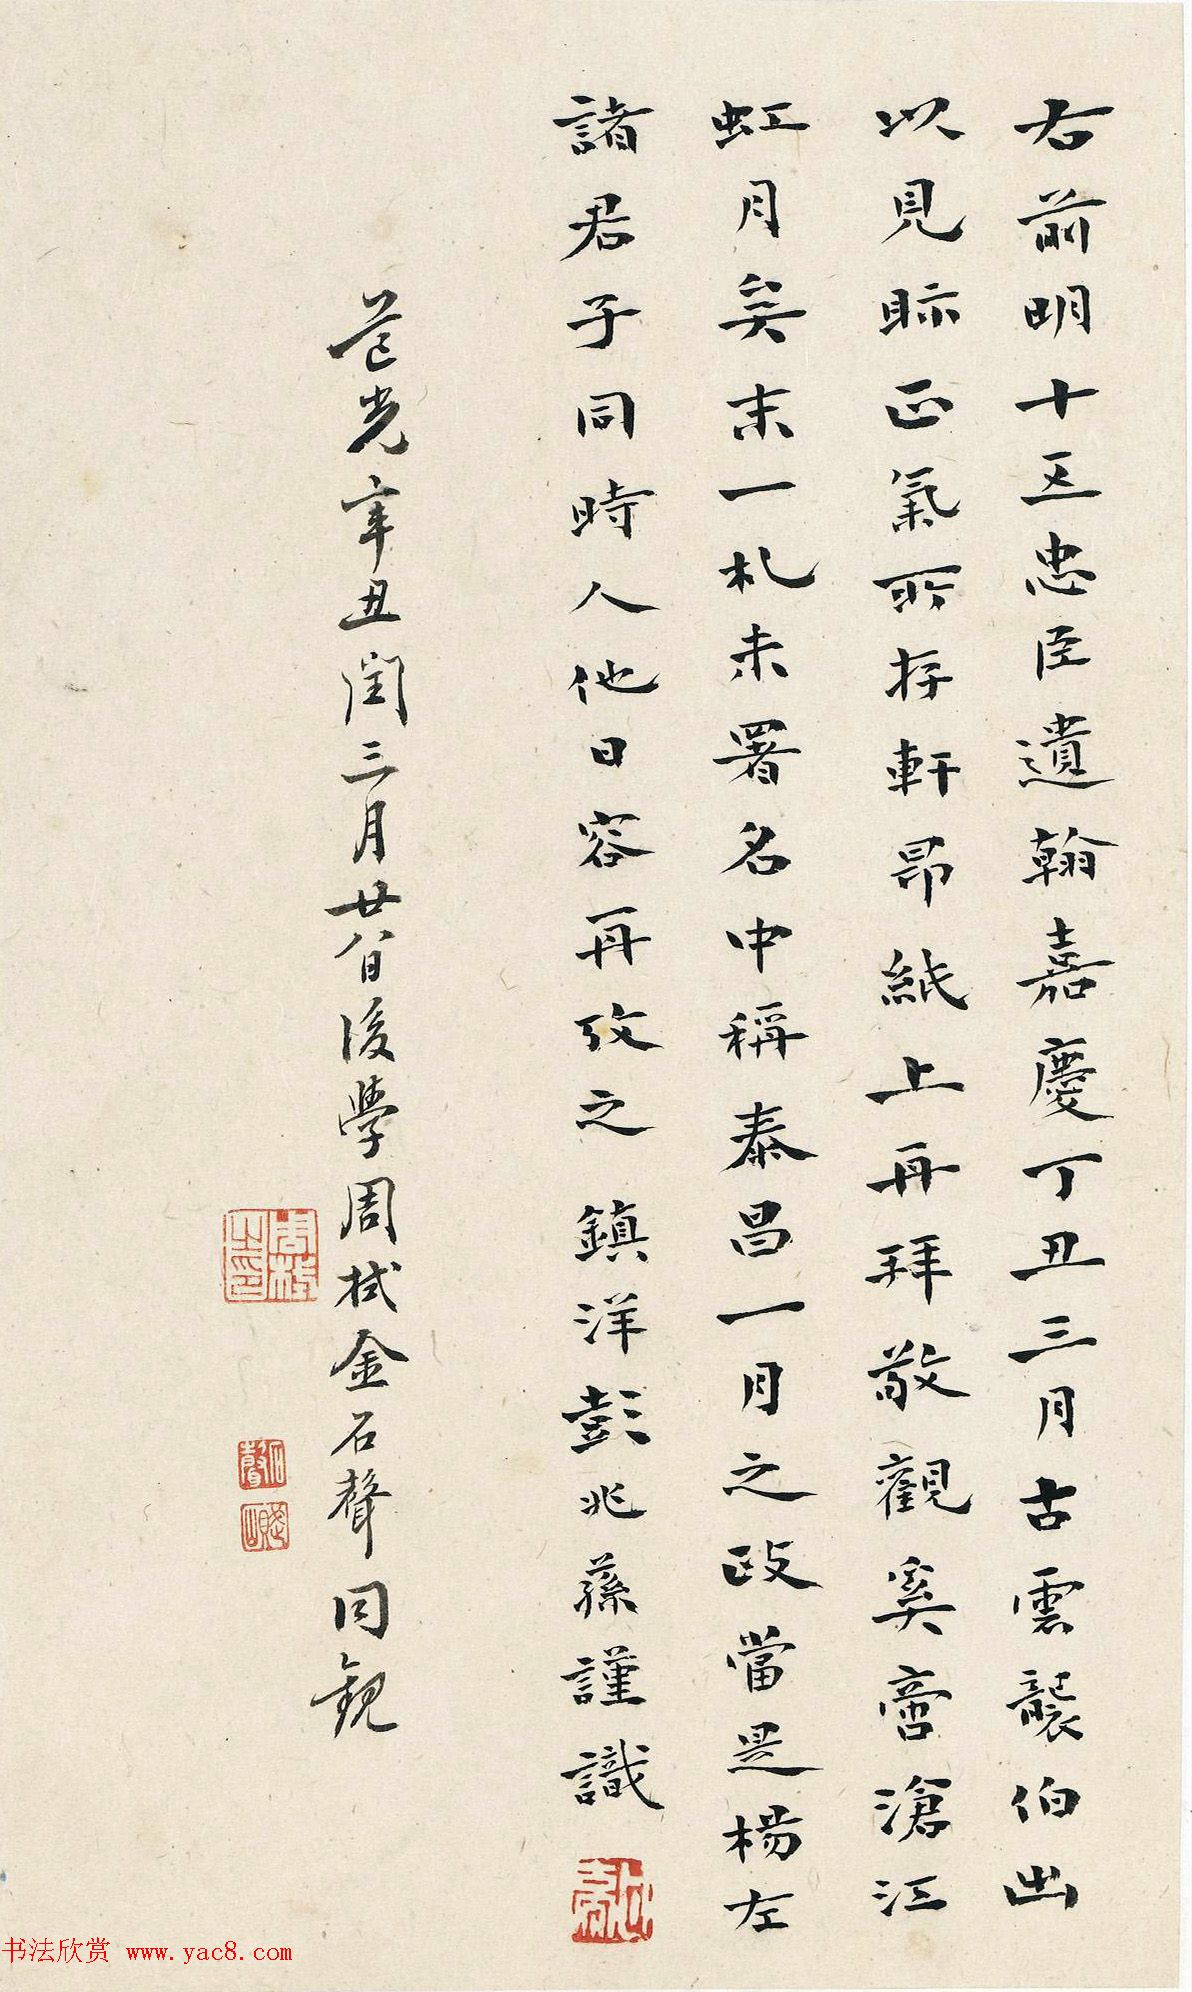 右前明十五忠臣遺翰嘉慶丁丑三月古雲襲伯出
以見眎正氣所存軒昂紙上再拜敬觀奚啻滄江
虹月矣末一札未署名中稱泰昌一月之政當是楊左
諸君子同時人他日容再攷之 鎮洋彭兆蓀謹識
道光辛丑閏三月廿八日後學周栻金石聲同觀
周栻之印
书法欣赏 www.yac8.com